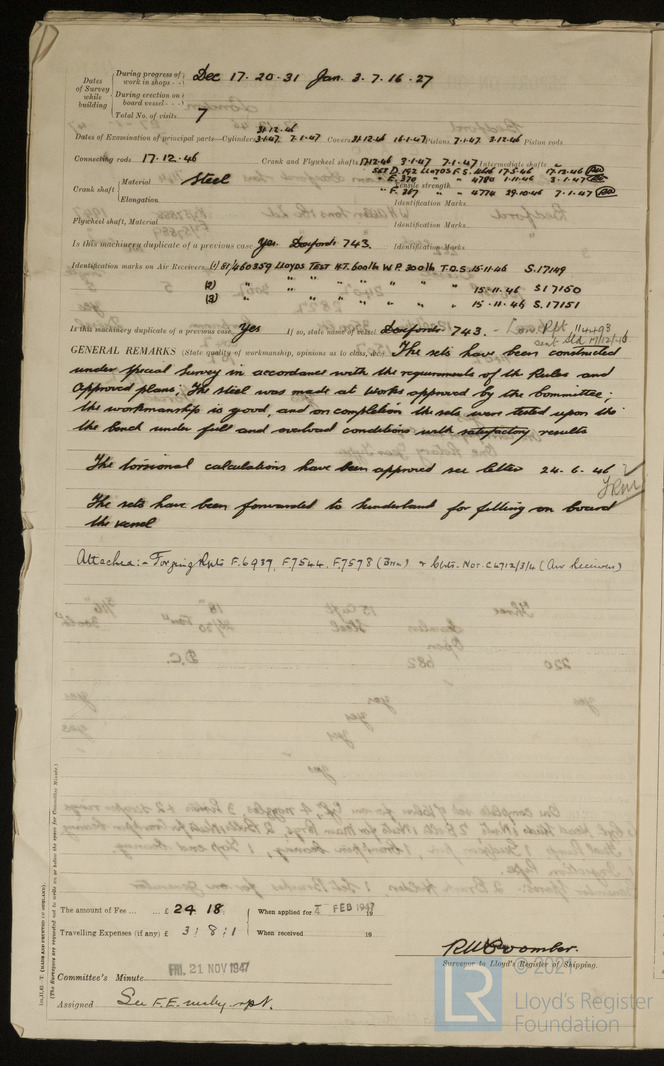 Dates of Survey while building
During progress of work in shops - - Dec 17. 20. 31 Jan. 3. 7. 16. 27
During erection on board vessel - - -
Total No. of visits 7
31.12.46
Dates of Examination of principal parts—Cylinders 3.1.47 7.1.47 Covers 31.12.46 16.1.47 Pistons 7.1.47 3.12.46 Piston rods
Connecting rods 17.12.46 Crank and Flywheel shafts 17.12.46 3.1.47 7.1.47 Intermediate shafts
Crank shaft
Material Steel
Elongation
D.192 LLOYDS F.S. 17.5.46 17.12.46
F. 370 " " 4784 1.11.46 3.1.47
Tensile strength
" F. 387 " " 4774 29.10.46 7.1.47
Identification Marks
Flywheel shaft, Material Identification Marks
Is this machinery duplicate of a previous case Yes. Doxfords 743. Identification Marks
Identification marks on Air Receivers (1) 81/460359 LLOYDS TEST H.T. 600lb W.P. 300lb T.D.S. 15.11.46 S.17149
(2) " " " " " " " " 15.11.46 S17150
(3) " " " " " " " " 15.11.46 S.17151
Is this machinery duplicate of a previous case Yes If so, state name of vessel Doxfords 743. - Rpt 11493
sent
GENERAL REMARKS (State quality of workmanship, opinions as to class, &c.) The sets have been constructed
under special survey in accordance with the requirements of the Rules and
approved plans; The steel was made at works approved by the Committee;
the workmanship is good, and on completion the sets were tested upon the
the bench under full and overload conditions with satisfactory results
The torsional calculations have been approved see letter 24.6.46
The sets have been forwarded to Sunderland for fitting on board
the vessel
Attached:- Forging Rpts F.6937, F7544, F7578 (Brm) & Certs. Nos. C4712/3/4 (Air Receivers)
The amount of Fee ... .. £ 24 18 When applied for FEB 1947 19
Travelling Expenses (if any) £ 3 : 8 : 1 When received 19
R.W. Coomber.
Surveyor to Lloyd's Register of Shipping.
Committee's Minute FRI. 21 NOV 1947
Assigned See F.E. mchy. rpt.
(The Surveyors are requested not to write on or below the space for Committee Minute.)
(MADE AND PRINTED IN ENGLAND)
LR
© 2021
Lloyd's Register
Foundation